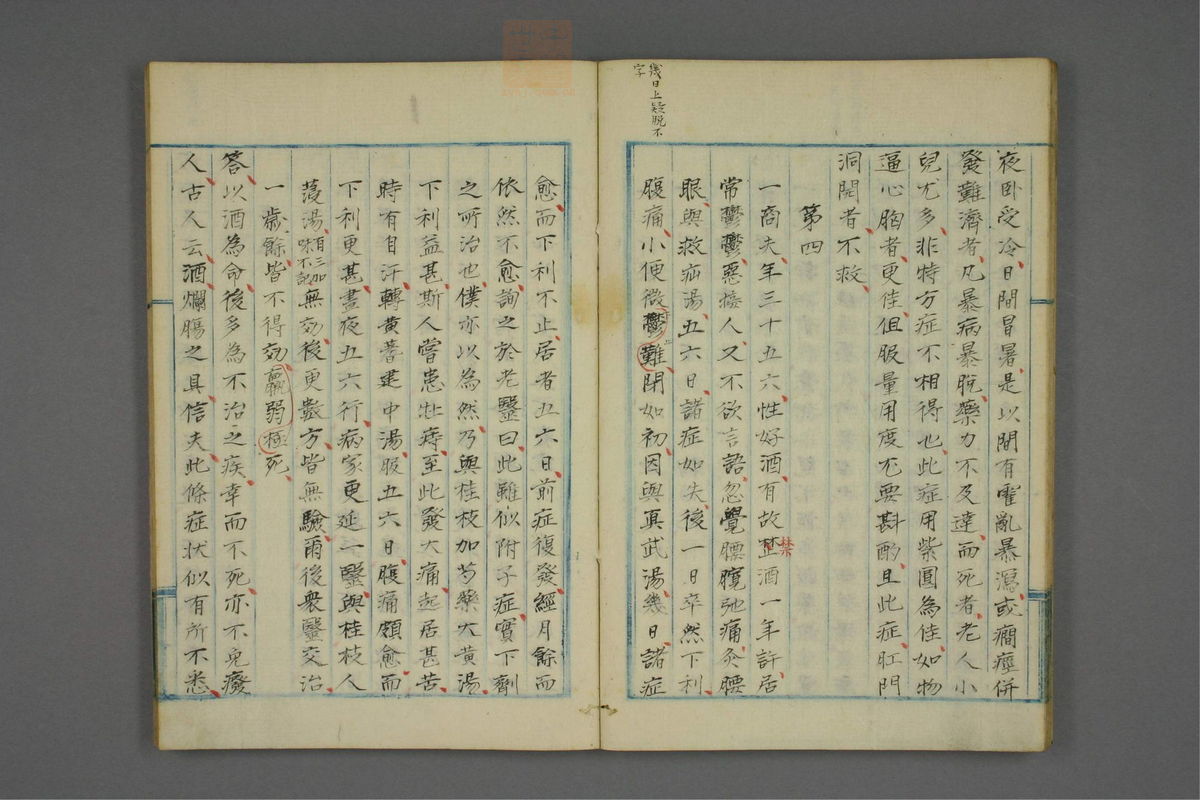 幾日上疑脱不
字
夜卧受冷日間冒暑是以間有霍亂暴瀉或癇痙併
發難濟者凡暴病暴脱藥力不及達而死者老人小
兒尤多非特方症不相得也此症用紫圓為佳如物
逼心胸者更佳但服量用度尤要斟酌且此症肛門
洞開者不救
第四
一商夫年三十五六性好酒有故禁酒一年許居
常鬱鬱惡接人又不欲言語忽覺腰弛痛灸腰
眼與救疝湯五六日諸症如失後一日卒然下利
腹痛小便微難閉如初因與真武湯幾日諸症
愈而下利不止居者五六日前症復發經月餘而
依然不愈詢之於老醫曰此雖似附子症實下劑
之所治也僕亦以為然乃與桂枝加芍藥大黄湯
下利益甚斯人嘗患牡痔至此發大痛起居甚苦
時有自汗轉黄蓍建中湯服五六日腹痛頗愈而
下利更甚晝夜五六行病家更延一醫與桂枝人
蓡湯自三加味不記無効後更數方皆無驗爾後衆醫交治
一歳餘皆不得効羸弱極死
答以酒為命後多為不治之疾幸而不死亦不免癈
人古人云酒爛腸之具信夫此條症状似有所不悉